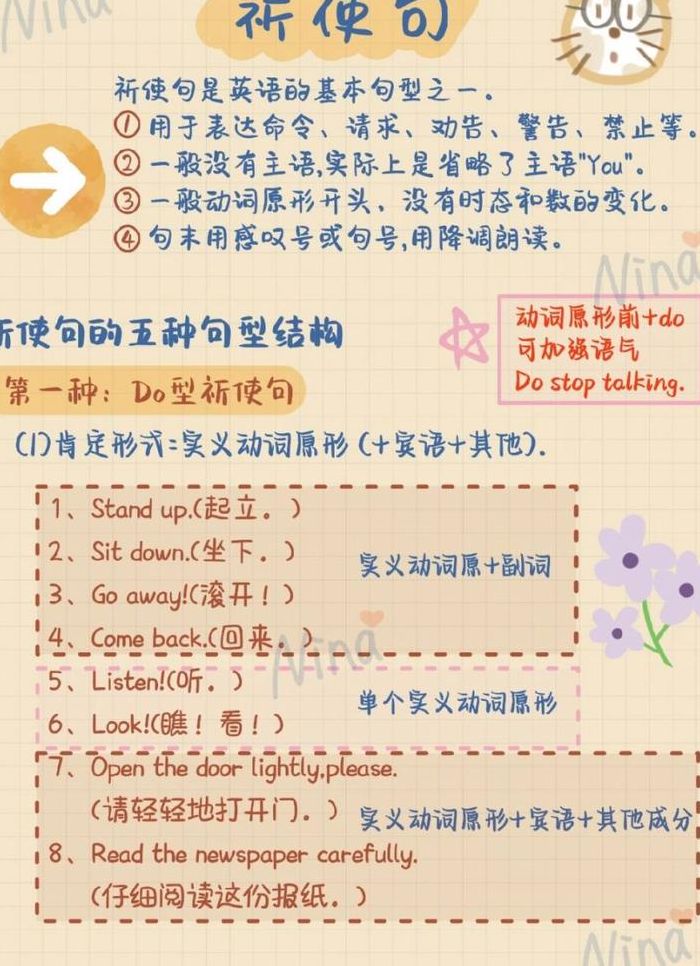 Nina
祈使句
祈使句是英语的基本句型之一。
①用于表达命令、请求、劝告、警告、禁止等。
②一般没有主语,实际上是省略了主语"You"。
③一般动词原形开头，没有时态和数的变化。
④句末用感叹号或句号,用降调朗读。
Nina
祈使句的五种句型结构
动词原形前+do
可加强语气
Do stop talking.
第一种：Do型祈使句
(1)肯定形式:实义动词原形(+宾语+其他).
1、Stand up.(起立。)
2、Sit down.(坐下。)
实义动词原+副词
3、Go away!(滚开！)
4、Come back.(回来。)
Nina
5、Listen!(听。)
单个实义动词原形
6、Look!(瞧！看！)
7、Open the door lightly,please.
(请轻轻地打开门。)
实义动词原形+宾语+其他成分
8、Read the newspaper carefully.
(仔细阅读这份报纸。)
Nina